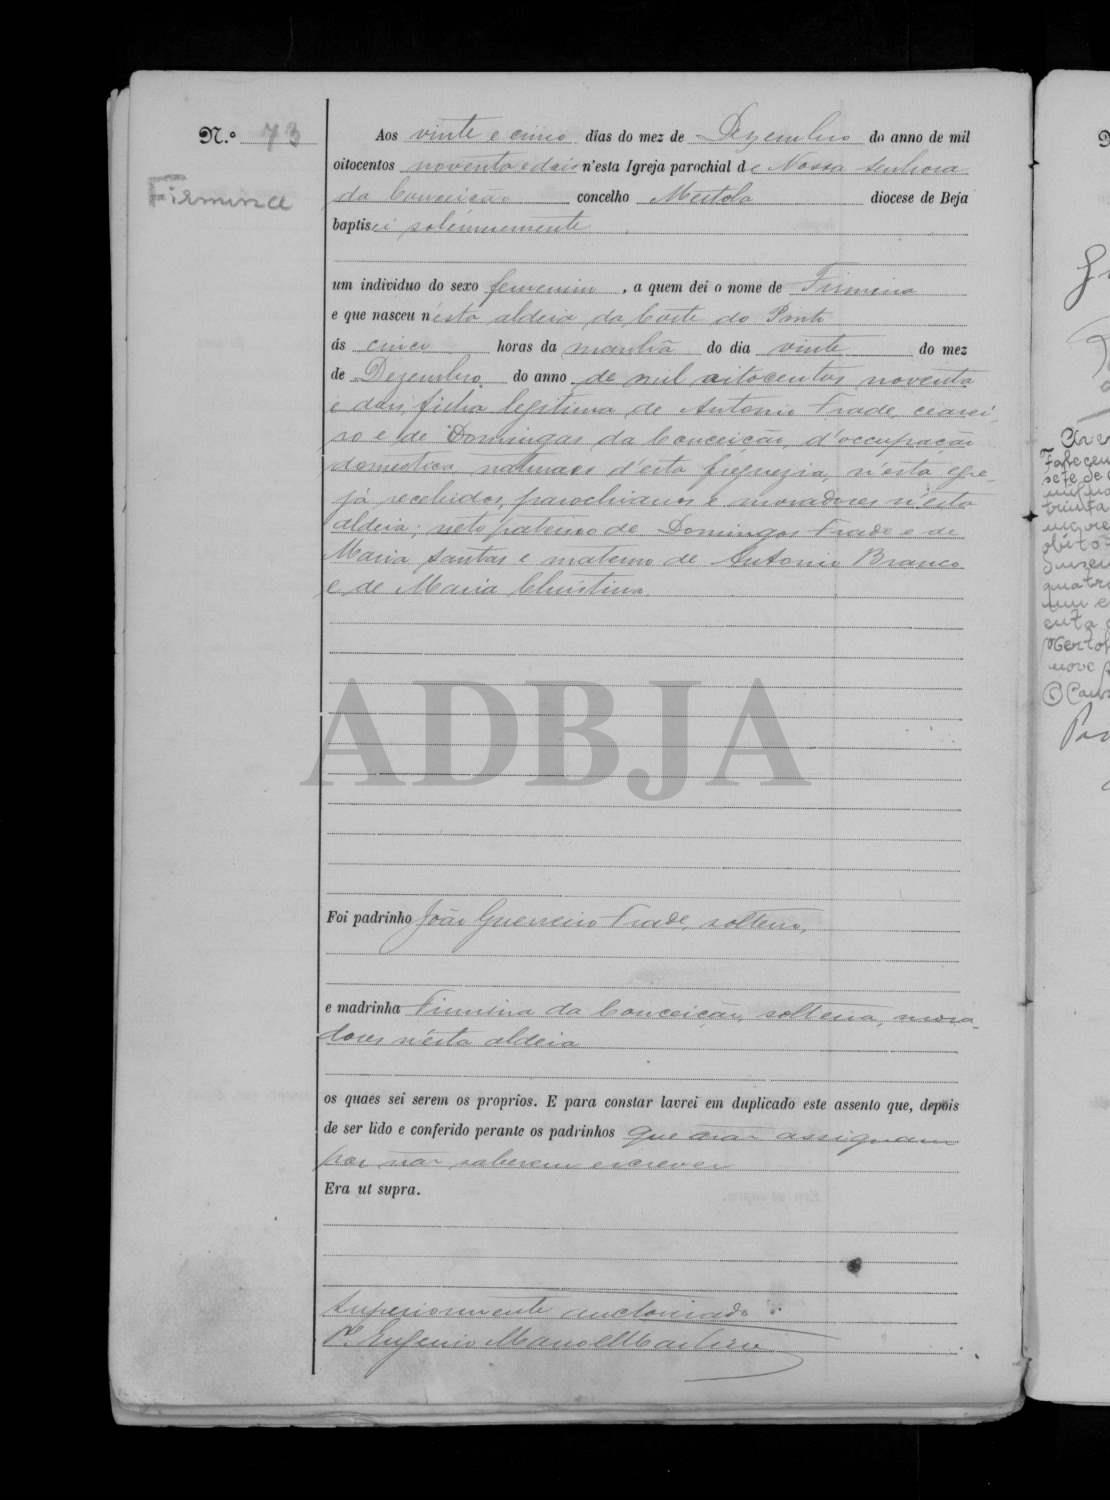 N.º 73
Firmina
Aos vinte e cinco dias do mez de Dezembro do anno de mil
oitocentos noventa e dois n'esta Igreja parochial de Nossa Senhora
da Conceição concelho Mertola diocese de Beja
baptisei solémnemente
um individuo do sexo femenino, a quem dei o nome de Firmina
e que nasceu n'esta aldeia da Corte do Pinto
ás cinco horas da manhã do dia vinte do mez
de Dezembro do anno de mil oitocentos noventa
e dois, filha legitima de Antonio Frade, cearei-
ro e de Domingas da Conceição, d'occupação
domestica, naturaes d'esta freguezia, n'esta egre-
ja recebidos, parochianos e moradores n'esta
aldeia; neto paterno de Domingos Frade e de
Maria Santas e materno de Antonio Branco
e de Maria Christina.
ADBJA
Foi padrinho João Guerreiro Frade, solteiro,
e madrinha Firmina da Conceição, solteira, mora-
dores n'esta aldeia
os quaes sei serem os proprios. E para constar lavrei em duplicado este assento que, depois
de ser lido e conferido perante os padrinhos que não assignam
por não saberem escrever
Era ut supra.
Superiormente auctorisado:
P.e Eugenio Manoel Martins
Faleceu
sete de
trinta
obito
quatro
um e
enta
Mertol
nove